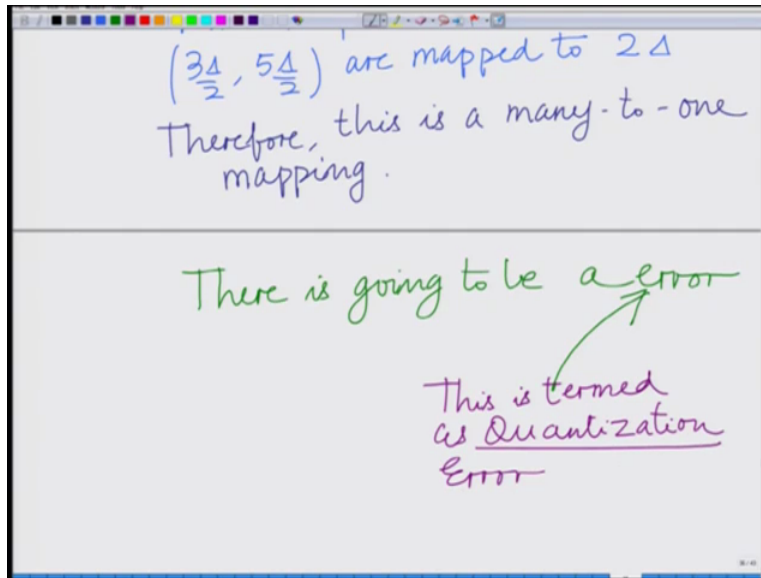 (3Δ/2, 5Δ/2) are mapped to 2Δ
Therefore, this is a many-to-one
mapping.
There is going to be a error
This is termed
as Quantization
Error